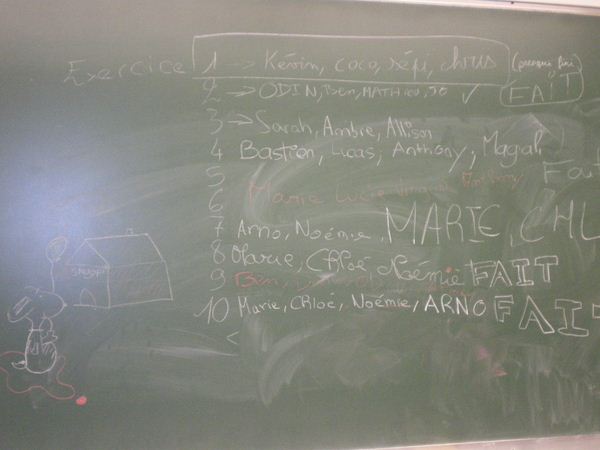 Exercice 1 → Kévin, coco, séfi, chris (presque fini)
2 → ODIN, Ben, MATHieu, Jo ✓ FAIT
3 → Sarah, Ambre, Allison
4 Bastien, Lucas, Anthony, Magali
5
6 Marie Lucie
7 Arno, Noémie, MARIE, CHL
8 Marie, Chloé Noémie FAIT
9 Ben,
10 Marie, Chloé, Noémie, ARNO FAIT
<
SNOOPY